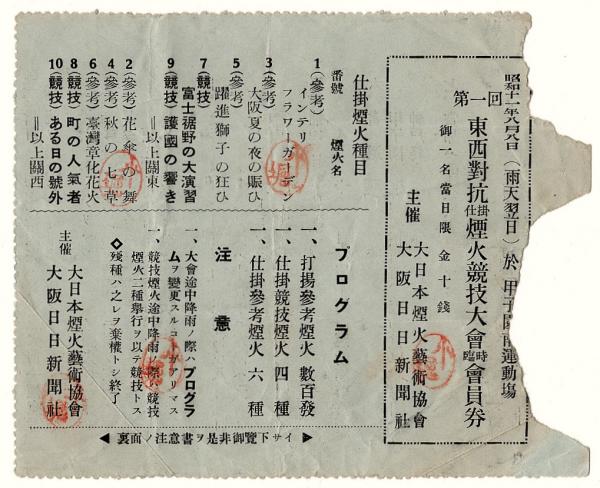 昭和十一年八月八日（雨天翌日）於 甲子園南運動場
第一回
東西對抗仕掛煙火競技大會臨時會員券
御一名當日限 金十錢
主催 大日本煙火藝術協會
大阪日日新聞社
仕掛煙火種目
番號 煙火名
1（參考）インテリフラワーガーデン
3（參考）大阪夏の夜の賑ひ
5（參考）躍進獅子の狂ひ
7（競技）富士裾野の大演習
9（競技）護國の響き
＝以上關東
2（參考）花傘の舞
4（參考）秋の七草
6（參考）臺灣章化花火
8（競技）町の人氣者
10（競技）ある日の號外
＝以上關西
プログラム
一、打揚參考煙火 數百發
一、仕掛競技煙火 四種
一、仕掛參考煙火 六種
注意
一、大會途中降雨ノ際ハプログラ
ムヲ變更スルコトガアリマス
一、競技煙火途中降雨ノ際ハ競技
煙火二種擧行ヲ以テ競技トス
◇殘種ハ之レヲ棄權トシ終了
主催 大日本煙火藝術協會
大阪日日新聞社
◀裏面ノ注意書ヲ是非御覽下サイ▶